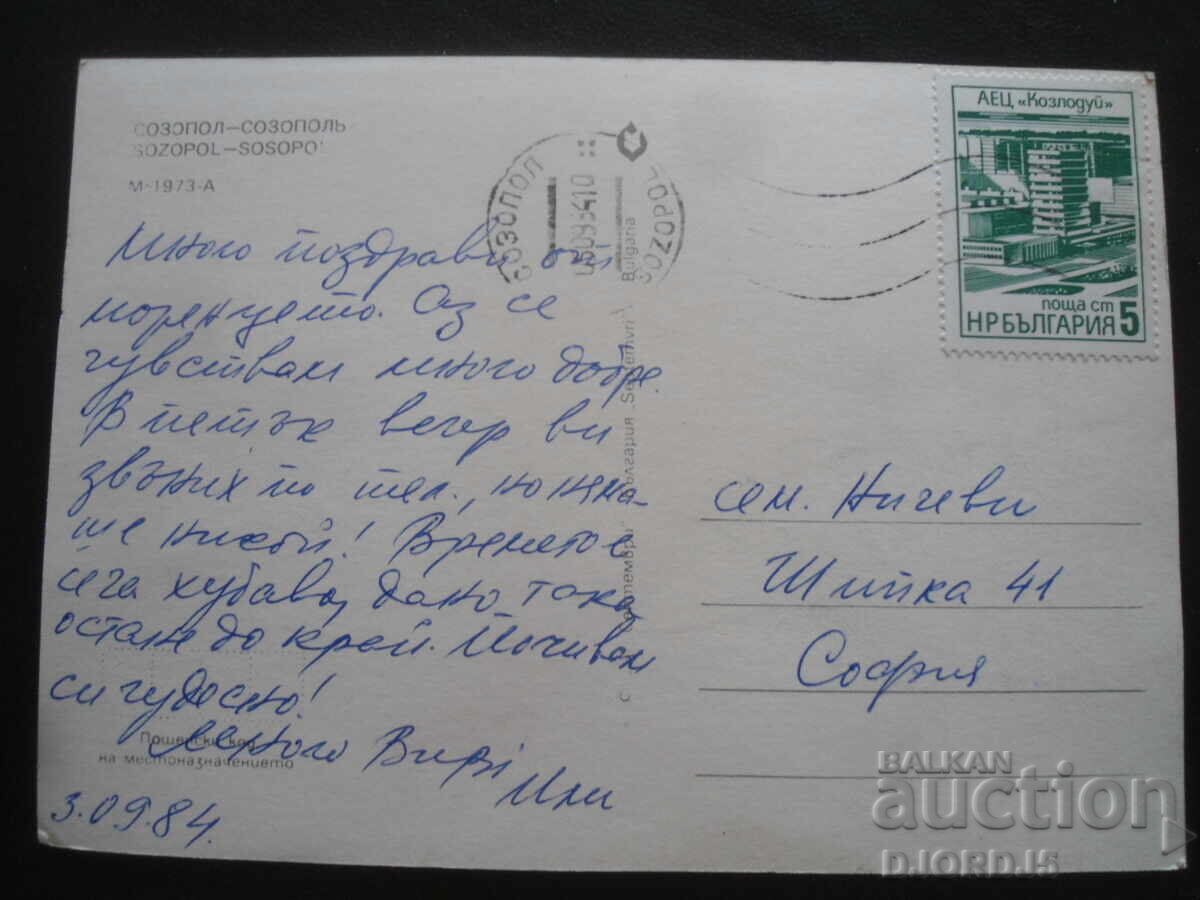 СОЗОПОЛ—СОЗОПОЛЬ
SOZOPOL—SOSOPOL
М-1973-А
СОЗОПОЛ
SOZOPOL
АЕЦ «Козлодуй»
поща ст
НРБЪЛГАРИЯ 5
Много поздрави от
моренцето. Аз се
чувствам много добре.
В петък вечер ви
звъних по тел., но няма-
ше никой! Времето е
сега хубаво, дано така
остане до край. Почивам
си чудесно!
3.09.84.
Пощенски код
на местоназначението
"Септември" България „Septemvri" Bulgaria
сем. Ничеви
Шипка 41
София
BALKAN
auction
D.JORD.15